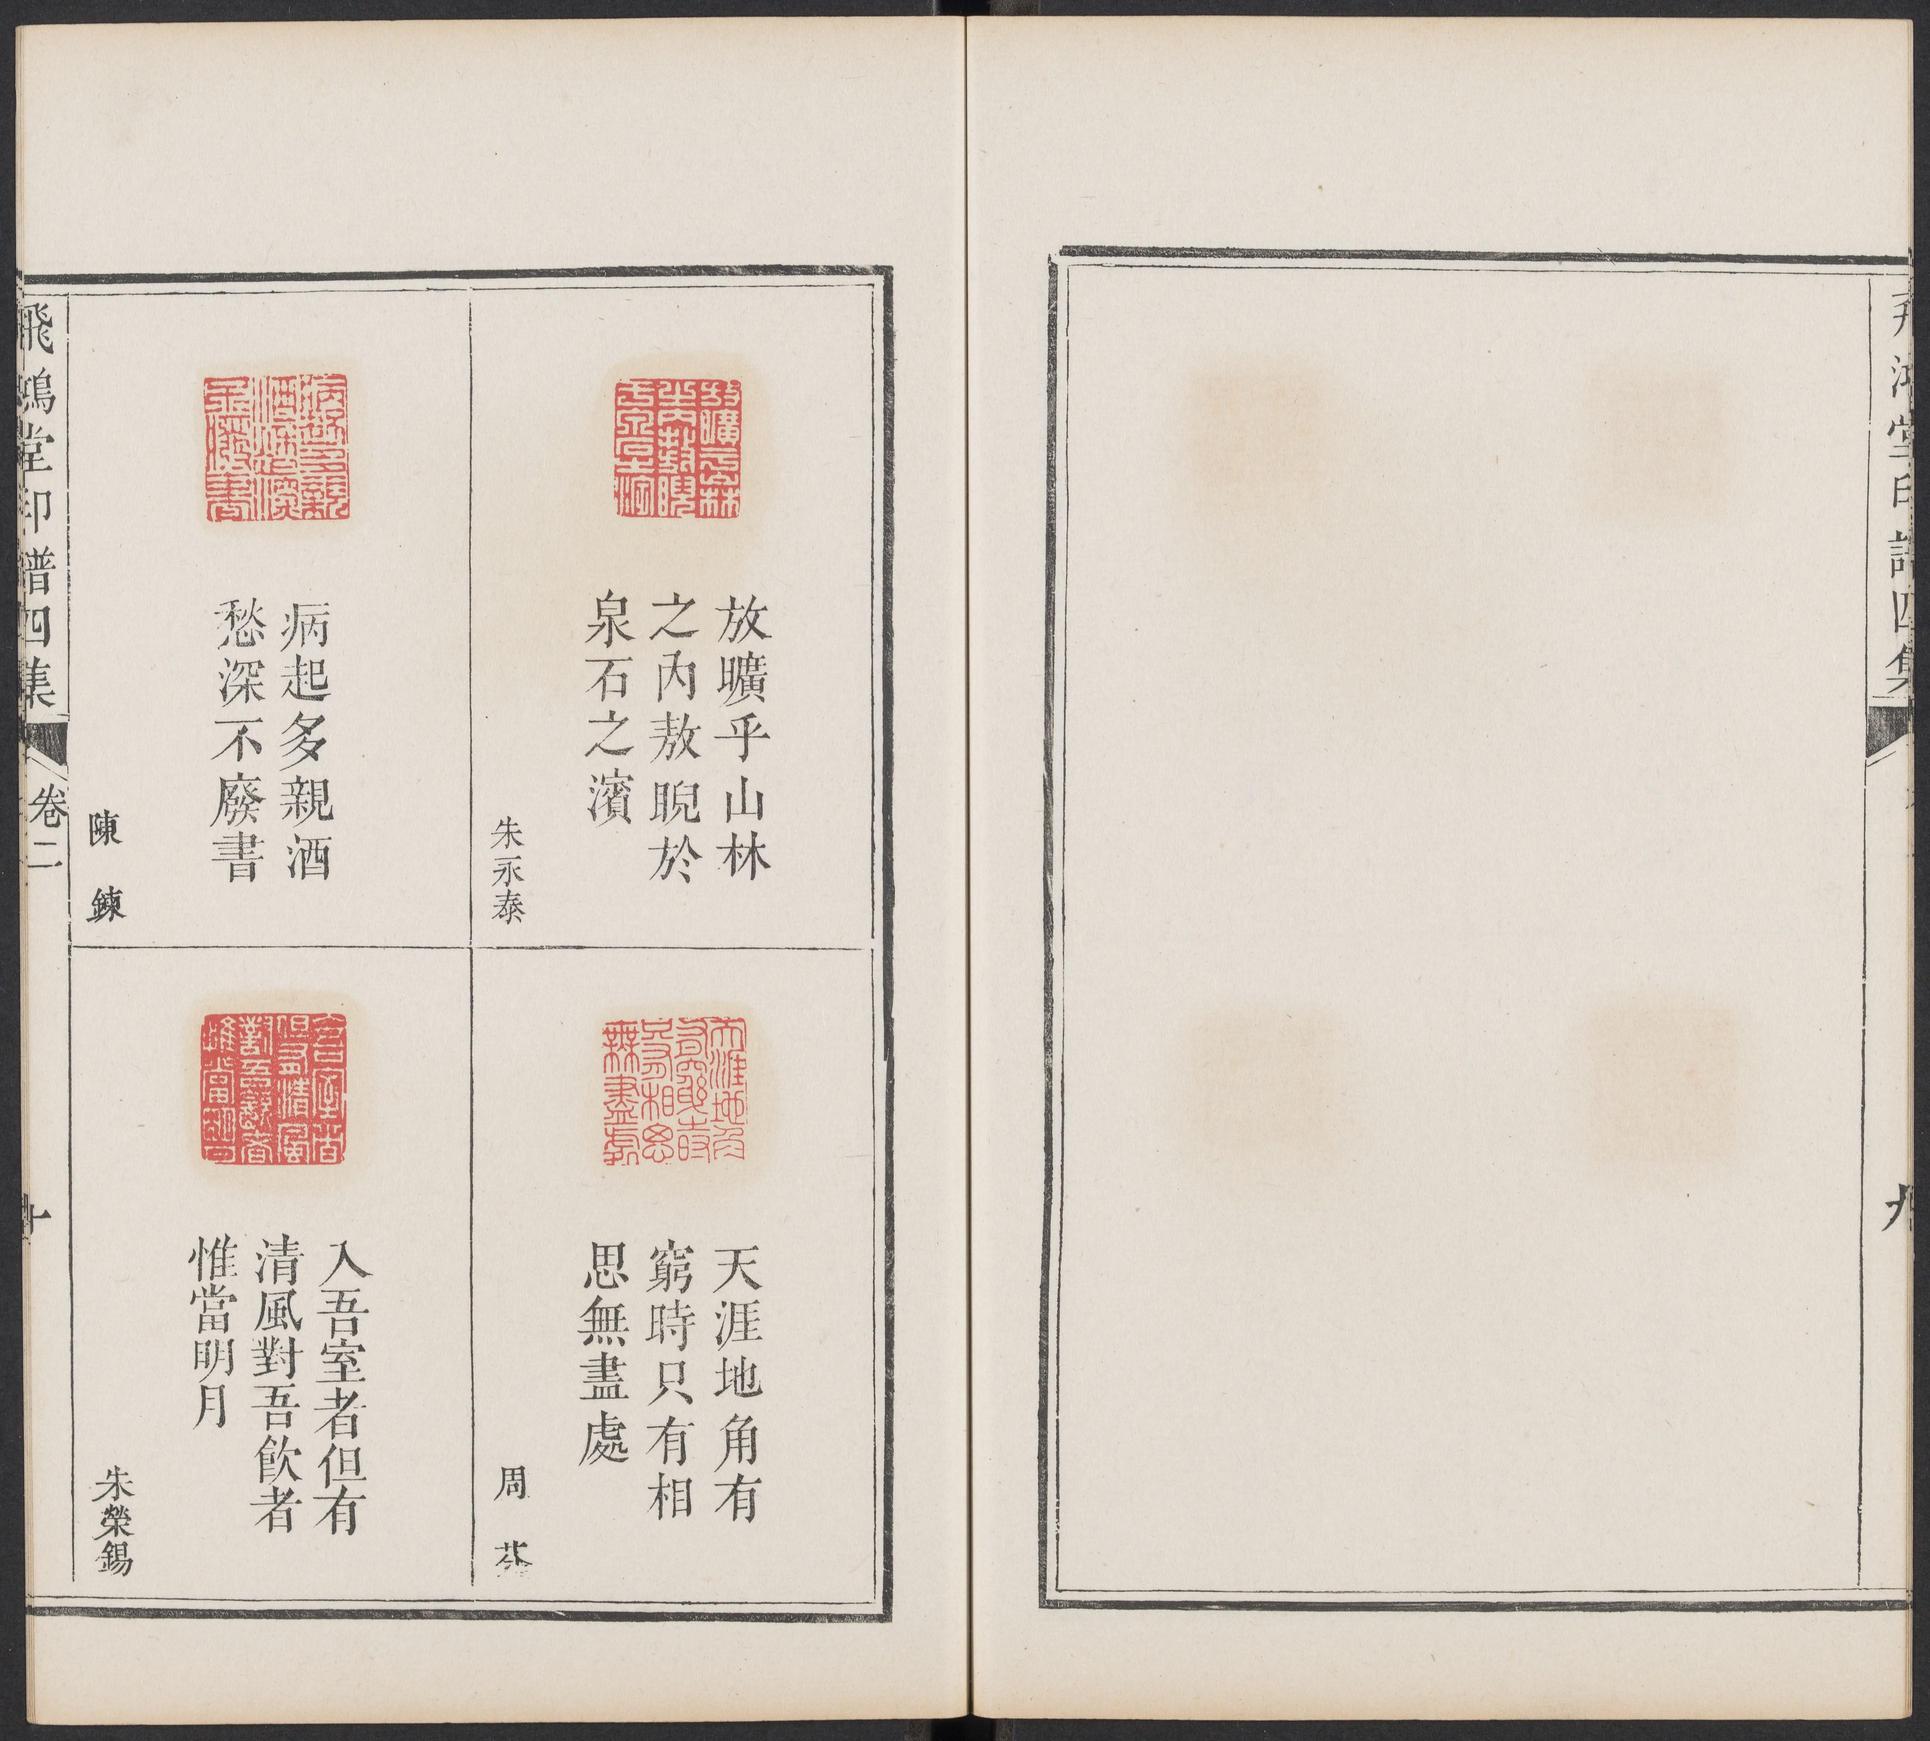 飛鴻堂印譜四集
九
放曠乎山林
之內敖睨於
泉石之濱
朱永泰
天涯地角有
窮時只有相
思無盡處
周芬
病起多親酒
愁深不廢書
陳鍊
入吾室者但有
清風對吾飲者
惟當明月
朱榮錫
飛鴻堂印譜四集
卷二
十